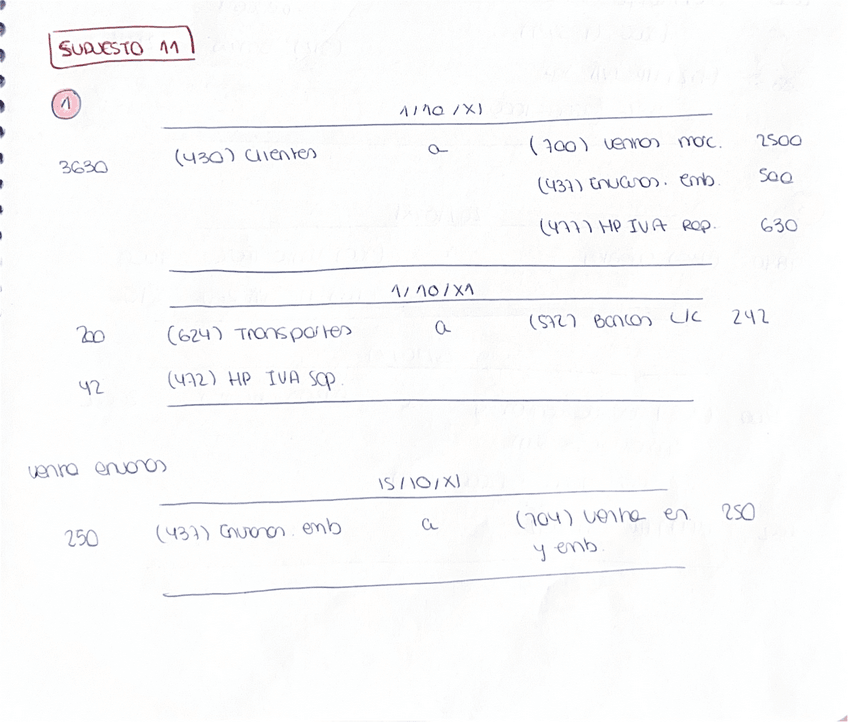 SUPUESTO 11
1
1/10/X1
3630 (430) Clientes a (700) Ventas merc. 2500
(437) Envases. emb. 500
(477) HP IVA Rep. 630
1/10/X1
200 (624) Transportes a (572) Bancos c/c 242
42 (472) HP IVA Sop.
venta envases
15/10/X1
250 (437) Envases. emb a (704) Venta en 250
y emb.